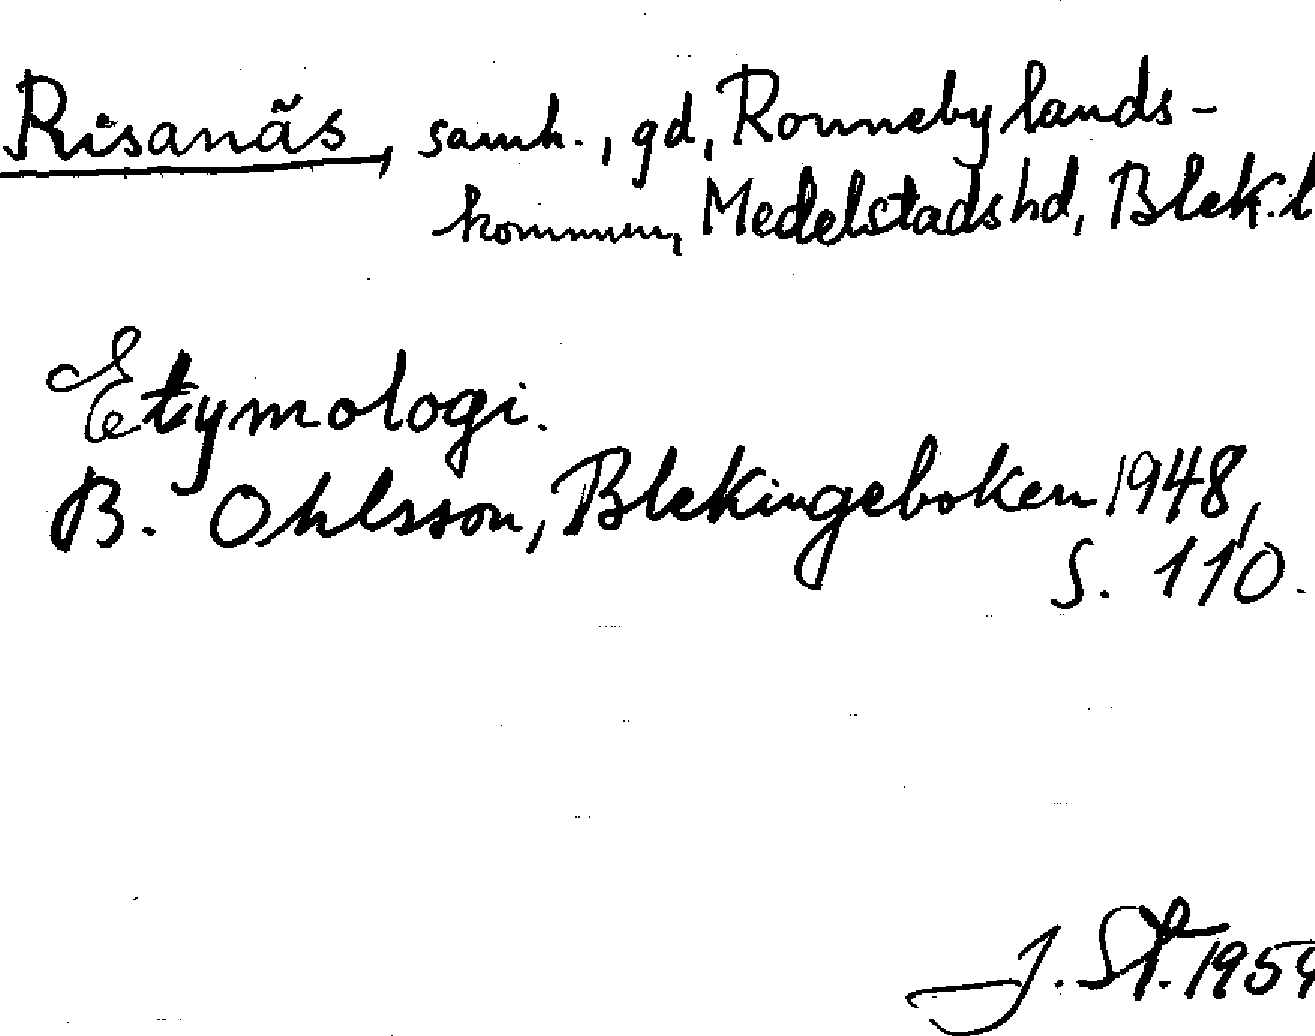 Risanäs, samh., gd, Ronneby lands-
kommun, Medelstads hd, Blek. l
Etymologi.
B. Ohlsson, Blekingeboken 1948,
S. 110.
J. St. 1959